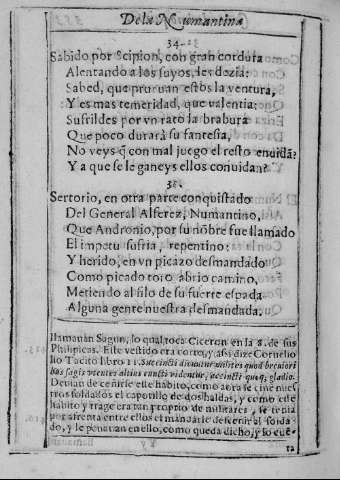 De la Numantina
34.
Sabido por Scipion, con gran cordura
Alentando a los suyos, les dezia:
Sabed, que prueuan estos la ventura,
Y es mas temeridad, que valentia;
Sufrildes por vn rato la brabura
Que poco durarà su fantesia,
No veys q̃ con mal juego el resto enuidã?
Y a que se le ganeys ellos conuidan?
Sertorio, en otra parte conquistado
Del General Alferez, Numantino,
Que Andronio, por su nõbre fue llamado
El impetu sufria, repentino:
Y herido, en vn picazo desmandado
Como picado toro abrio camino,
Metiendo al filo de su fuerte espada
Alguna gente nuestra desmandada.
llamauan Sagun, lo qual toca Ciceron en la 8. de sus
Philipicas. Este vestido era corto, y assi dize Corneliio
Tacito libro 11.
has sagis vtentes altius cuncti videntur, succincti quoq; gladio.
Deuian de ceñirse este habito, como aora se ciñe nuestros
soldados el capotillo de dos haldas, y como este
habito y trage era tan proprio de militares, se tenia
por afrenta entre ellos el mandarle desceñir al soldado,
y le penauan en ello, como queda dicho, y lo cuẽ-
ta